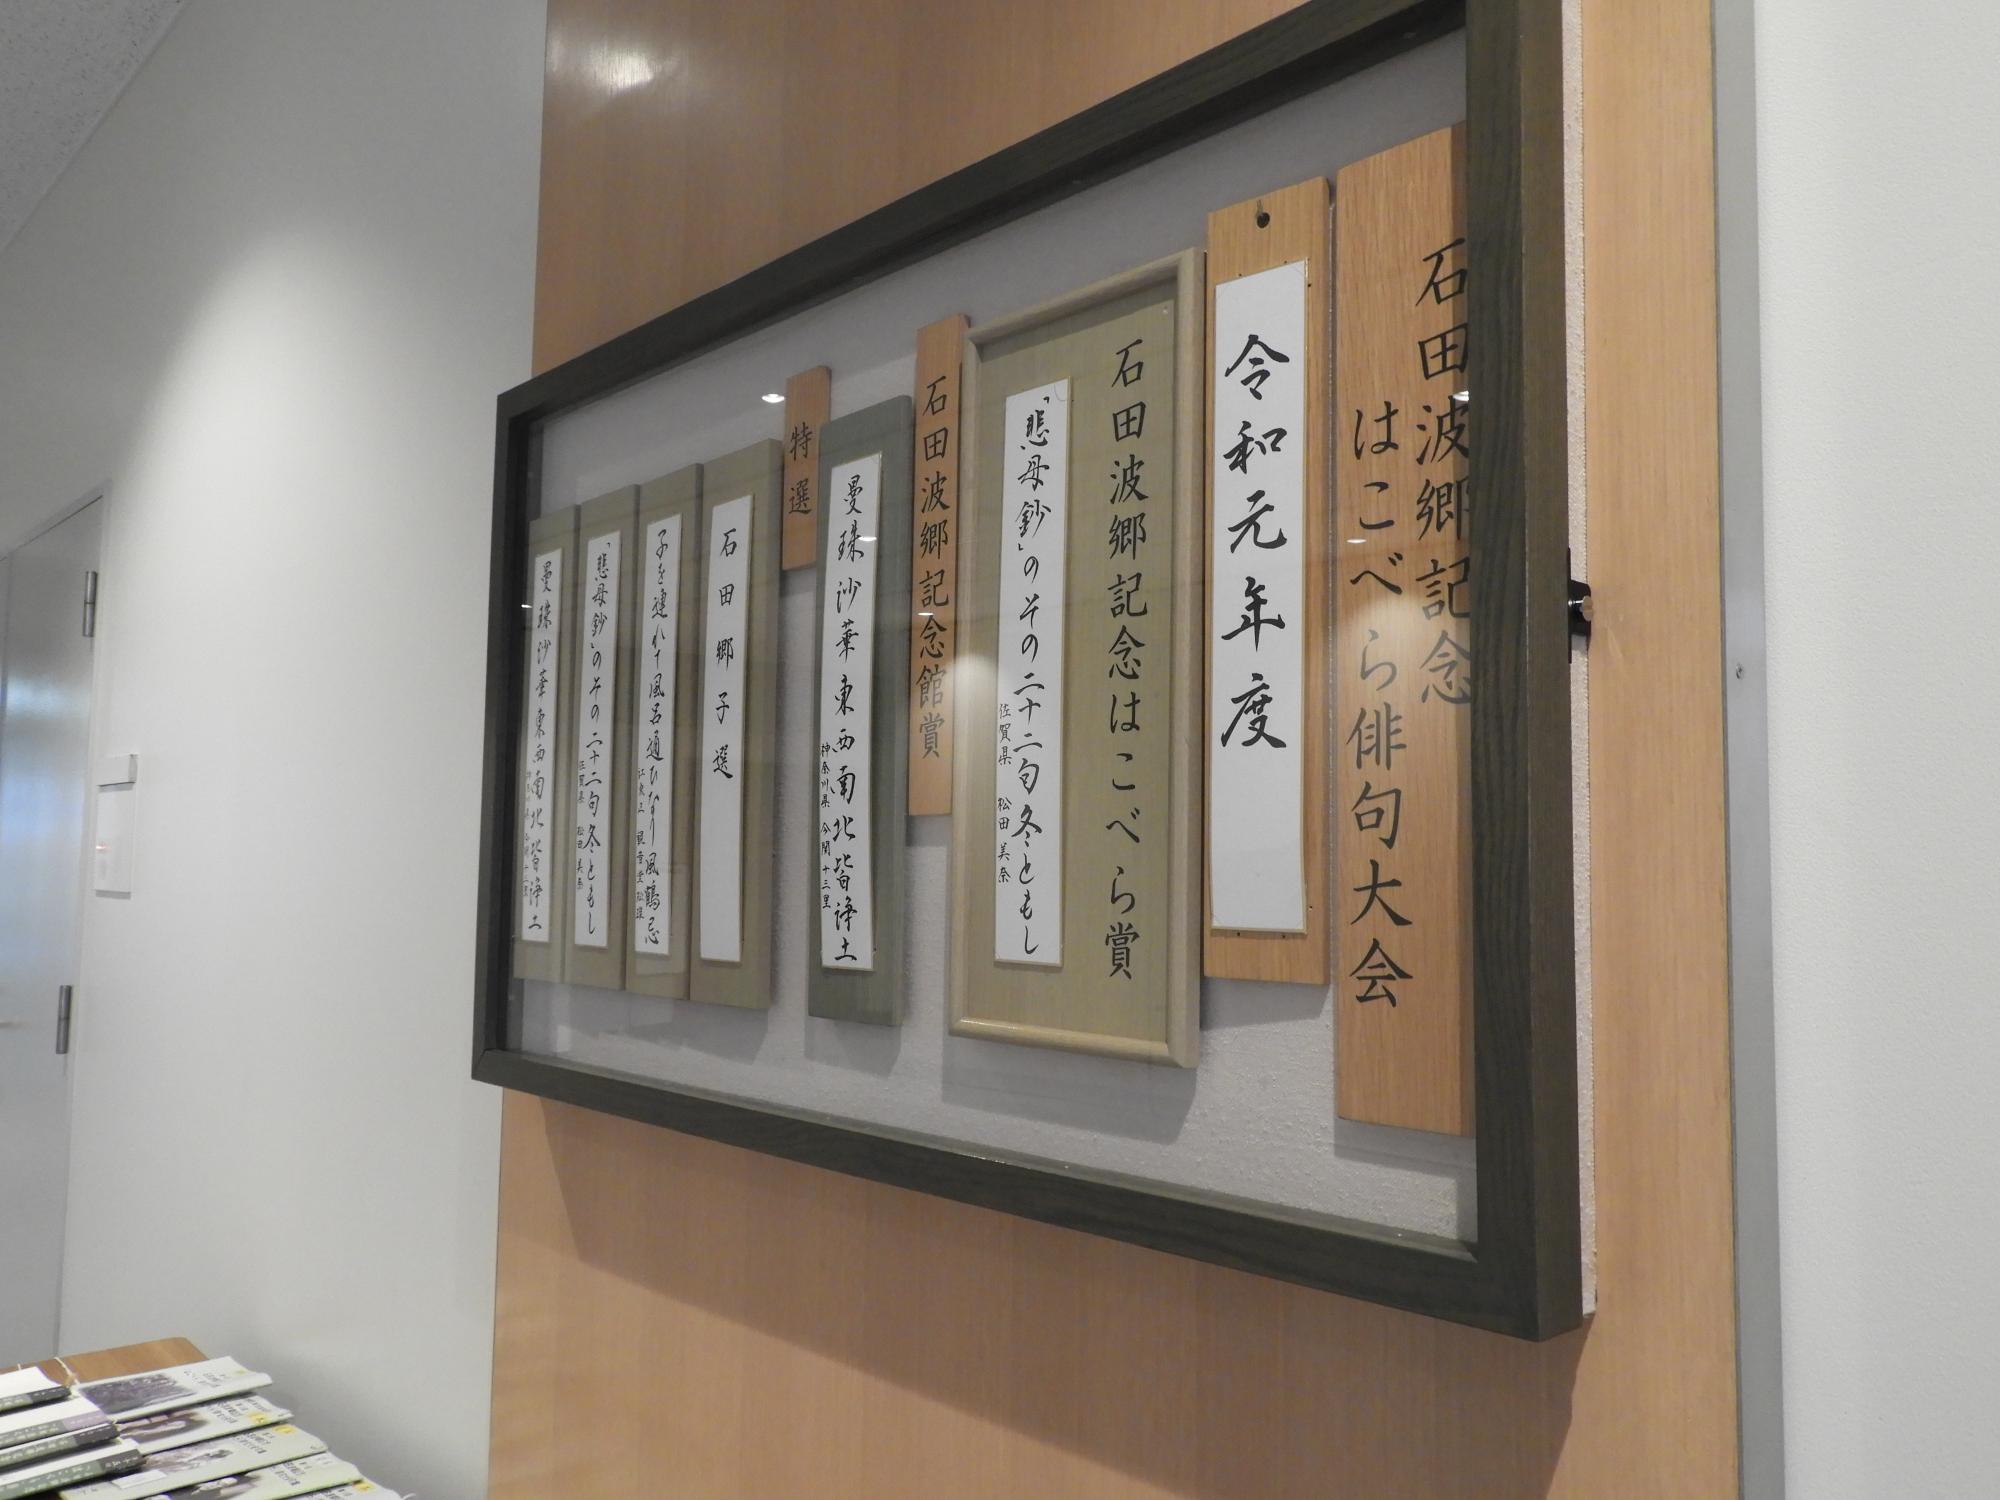 石田波郷記念
はこべら俳句大会
令和元年度
石田波郷記念はこべら賞
「悲母鈔」の その二十二句冬ともし
佐賀県 松田美奈
石田波郷記念館賞
曼珠沙華東西南北皆浄土
神奈川県 今関十三里
特選
石田郷子選
子を連れ十風呂通ひなり風鶴忌
江東区
「悲母鈔」の その二十二句冬ともし
佐賀県 松田美奈
曼珠沙華東西南北皆浄土
神奈川県 今関十三里